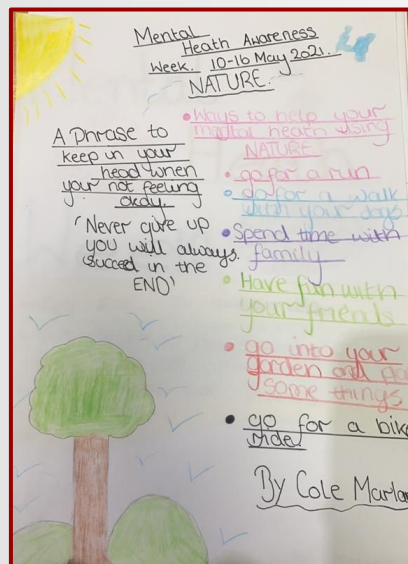 Mental
Heath Awareness
Week. 10-16 May 2021.
NATURE.
A Phrase to
keep in your
head when
your not feeling
okay.
'Never give up
you will always
succed in the
END'
•Ways to help your
mental heath using
NATURE
• go for a run
• go for a walk
with your dogs
• Spend time with
family
• Have fun with
your friends
• go into your
garden and
some things
• go for a bike
ride
By Cole